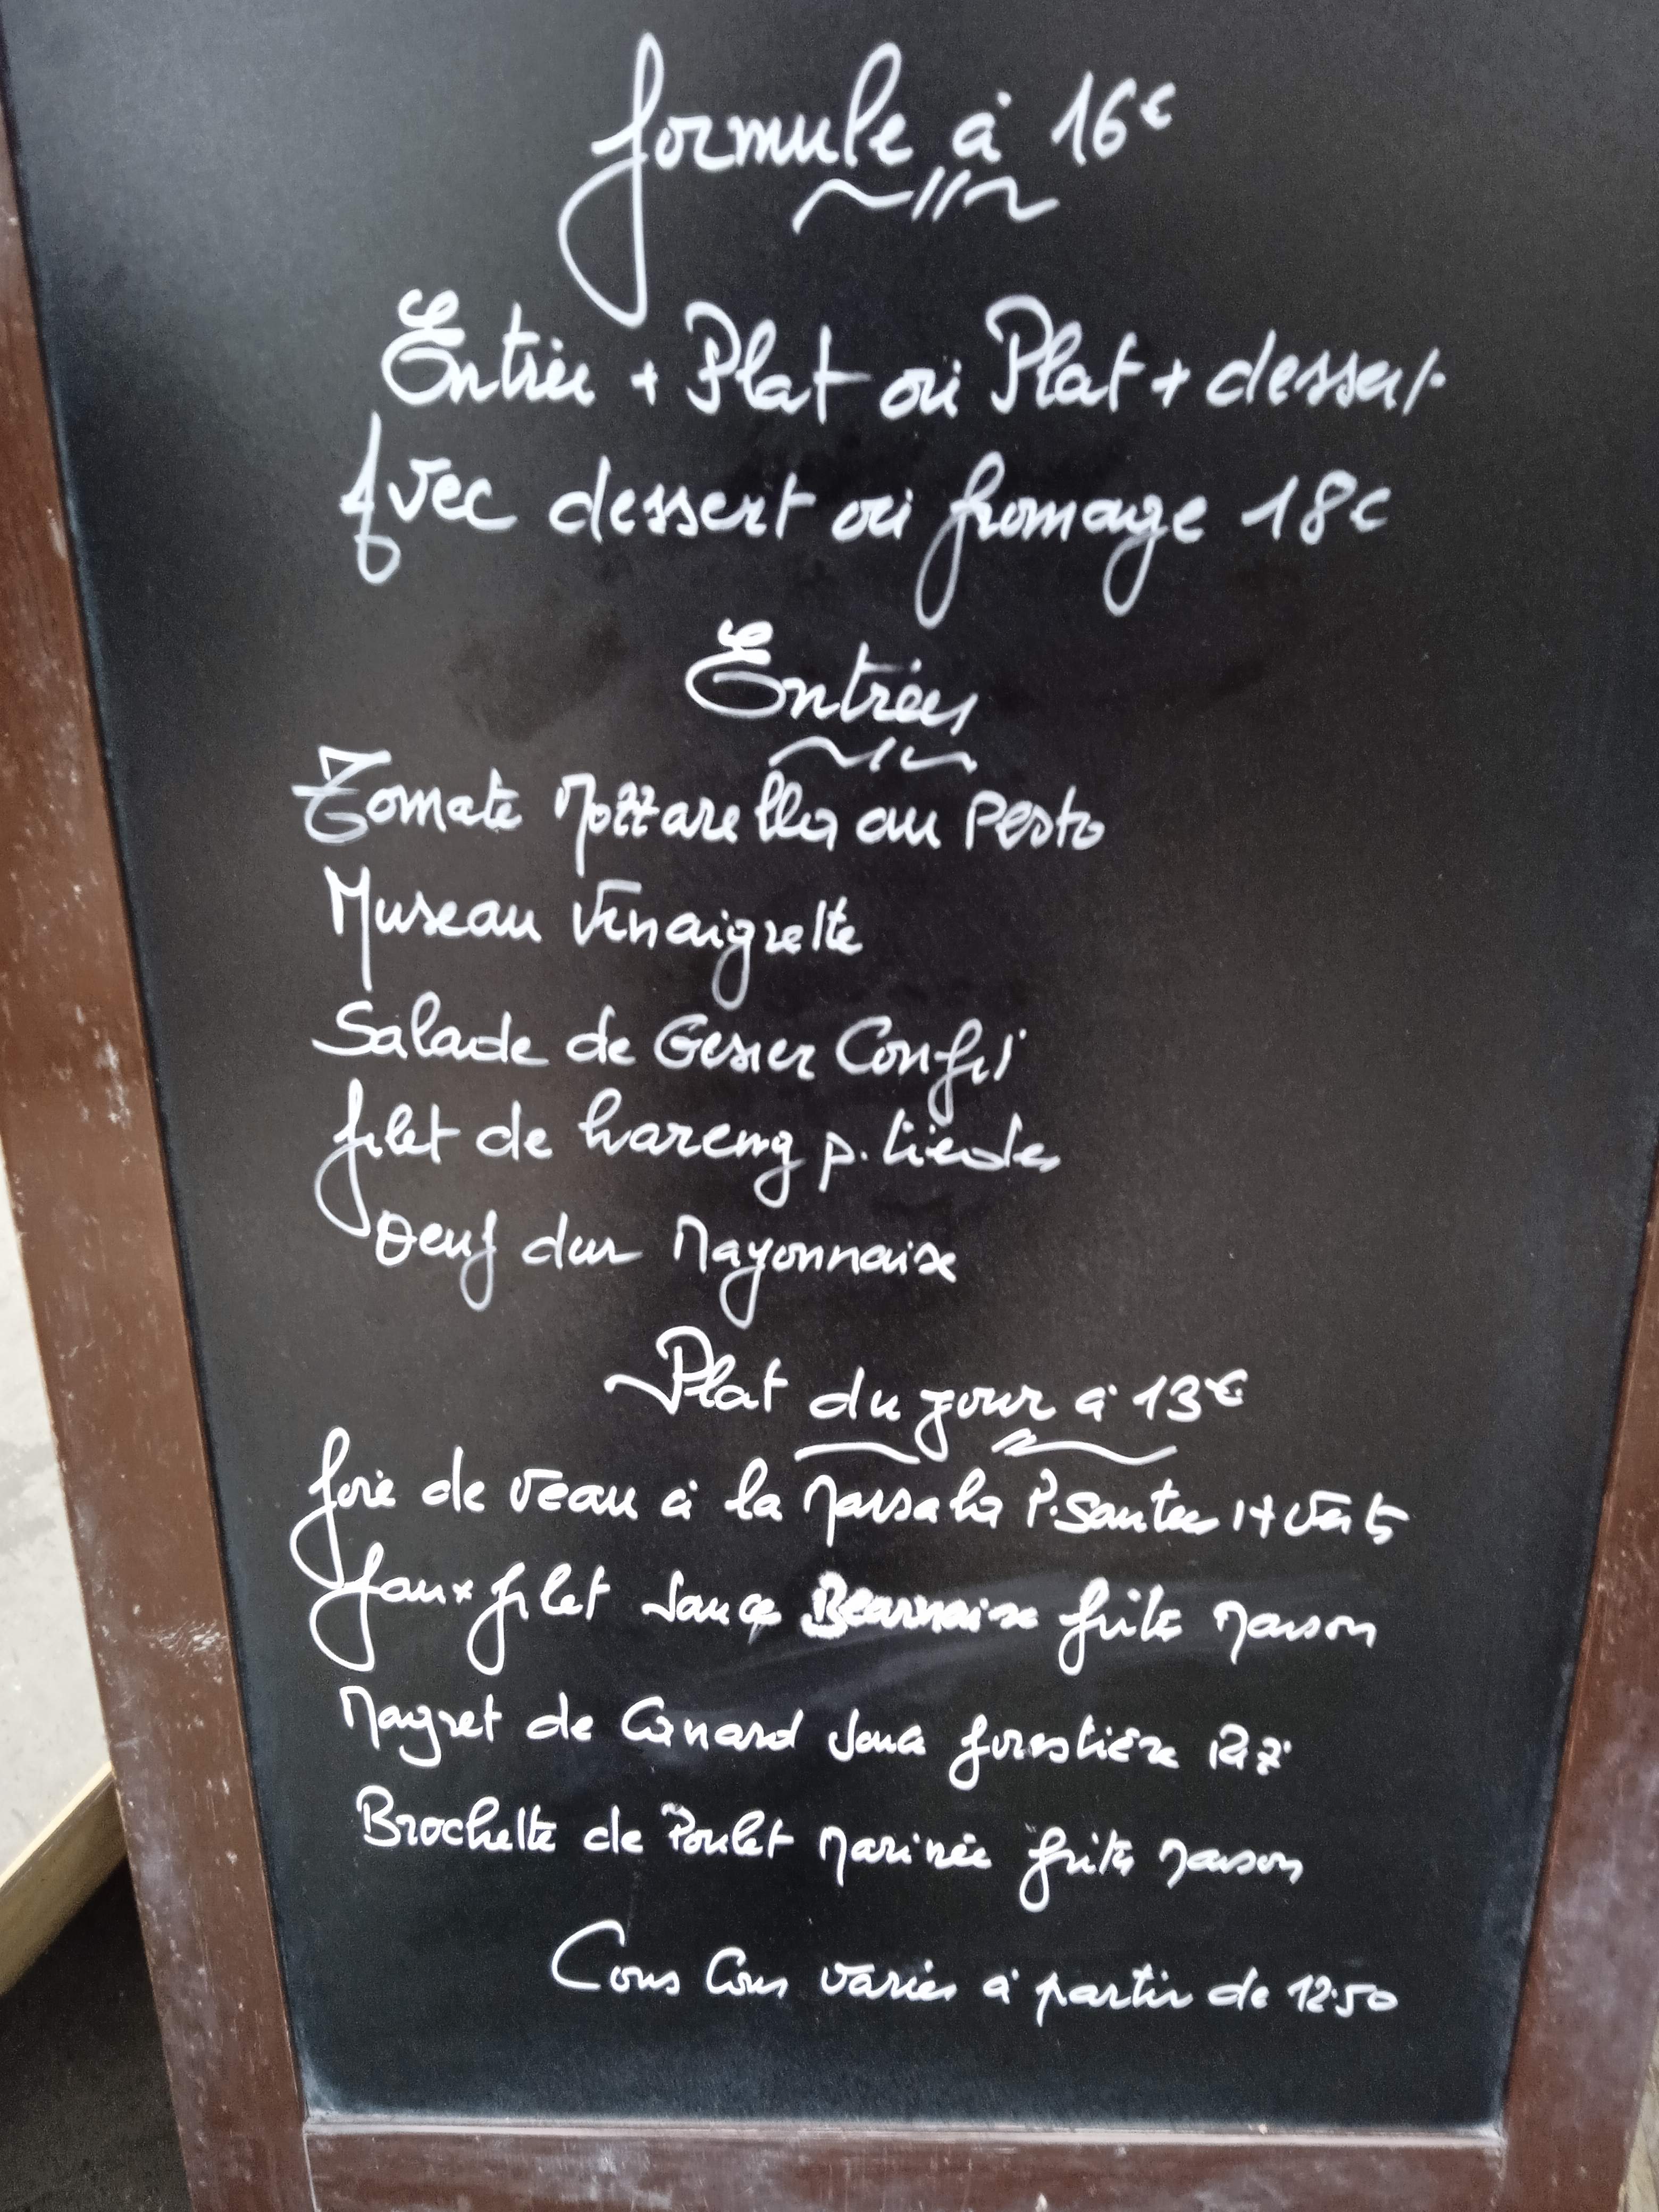 formule à 16€
Entrée + Plat ou Plat + dessert
Avec dessert ou fromage 18€
Entrées
Tomate Mozzarella au Pesto
Museau Vinaigrette
Salade de Gesier Confit
filet de hareng p. tiedes
Oeuf dur Mayonnaise
Plat du jour à 13€
foie de veau à la Marsala P. Sautees H Verts
faux filet Sauce Bearnaise frites Maison
Magret de Canard Sauce forestière Riz
Brochette de Poulet Marinée frites Maison
Cous Cous variés à partir de 12.50